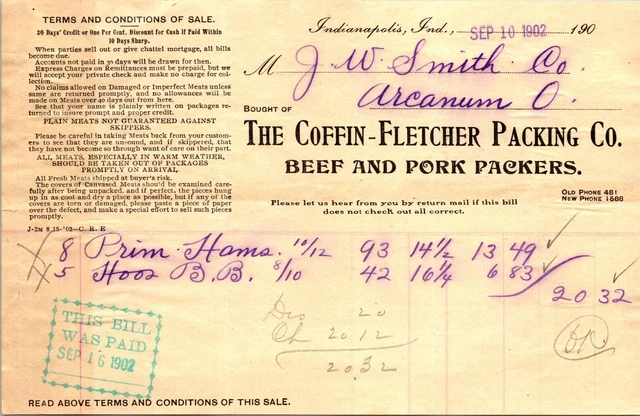 TERMS AND CONDITIONS OF SALE.
30 Days' Credit or One Per Cent. Discount for Cash if Paid Within
10 Days Sharp.
When parties sell out or give chattel mortgage, all bills
become due.
Accounts not paid in 30 days will be drawn for then.
Express Charges on Remittances must be prepaid, but we
will accept your private check and make no charge for col-
lection.
No claims allowed on Damaged or Imperfect Meats unless
same are returned promptly, and no allowances will be
made on Meats over 40 days out from here.
See that your name is plainly written on packages re-
turned to insure prompt and proper credit.
PLAIN MEATS NOT GUARANTEED AGAINST
SKIPPERS.
Please be careful in taking Meats back from your custom-
ers to see that they are unsound, and if skippered, that
they have not become so through want of care on their part.
ALL MEATS, ESPECIALLY IN WARM WEATHER,
SHOULD BE TAKEN OUT OF PACKAGES
PROMPTLY ON ARRIVAL.
All Fresh Meats shipped at buyer's risk.
The covers of Canvased Meats should be examined care-
fully after being unpacked, and if perfect, the pieces hung
up in as cool and dry a place as possible, but if any of the
covers are torn or damaged, please paste a piece of paper
over the defect, and make a special effort to sell such pieces
promptly.
J-2M 8-15-'02-C. R. E
Indianapolis, Ind., SEP 10 1902 190
M J. W. Smith Co.
Arcanum O.
BOUGHT OF
THE COFFIN-FLETCHER PACKING CO.
BEEF AND PORK PACKERS.
Please let us hear from you by return mail if this bill
does not check out all correct.
OLD PHONE 481
NEW PHONE 1686
8 Prim Hams. 10/12 93 14 1/2 13 49
5 Hoos B.B. 8/10 42 16 1/4 6 83
20 32
Dis 20
Ch 20 12
20 32
OK
THIS BILL
WAS PAID
SEP 16 1902
READ ABOVE TERMS AND CONDITIONS OF THIS SALE.